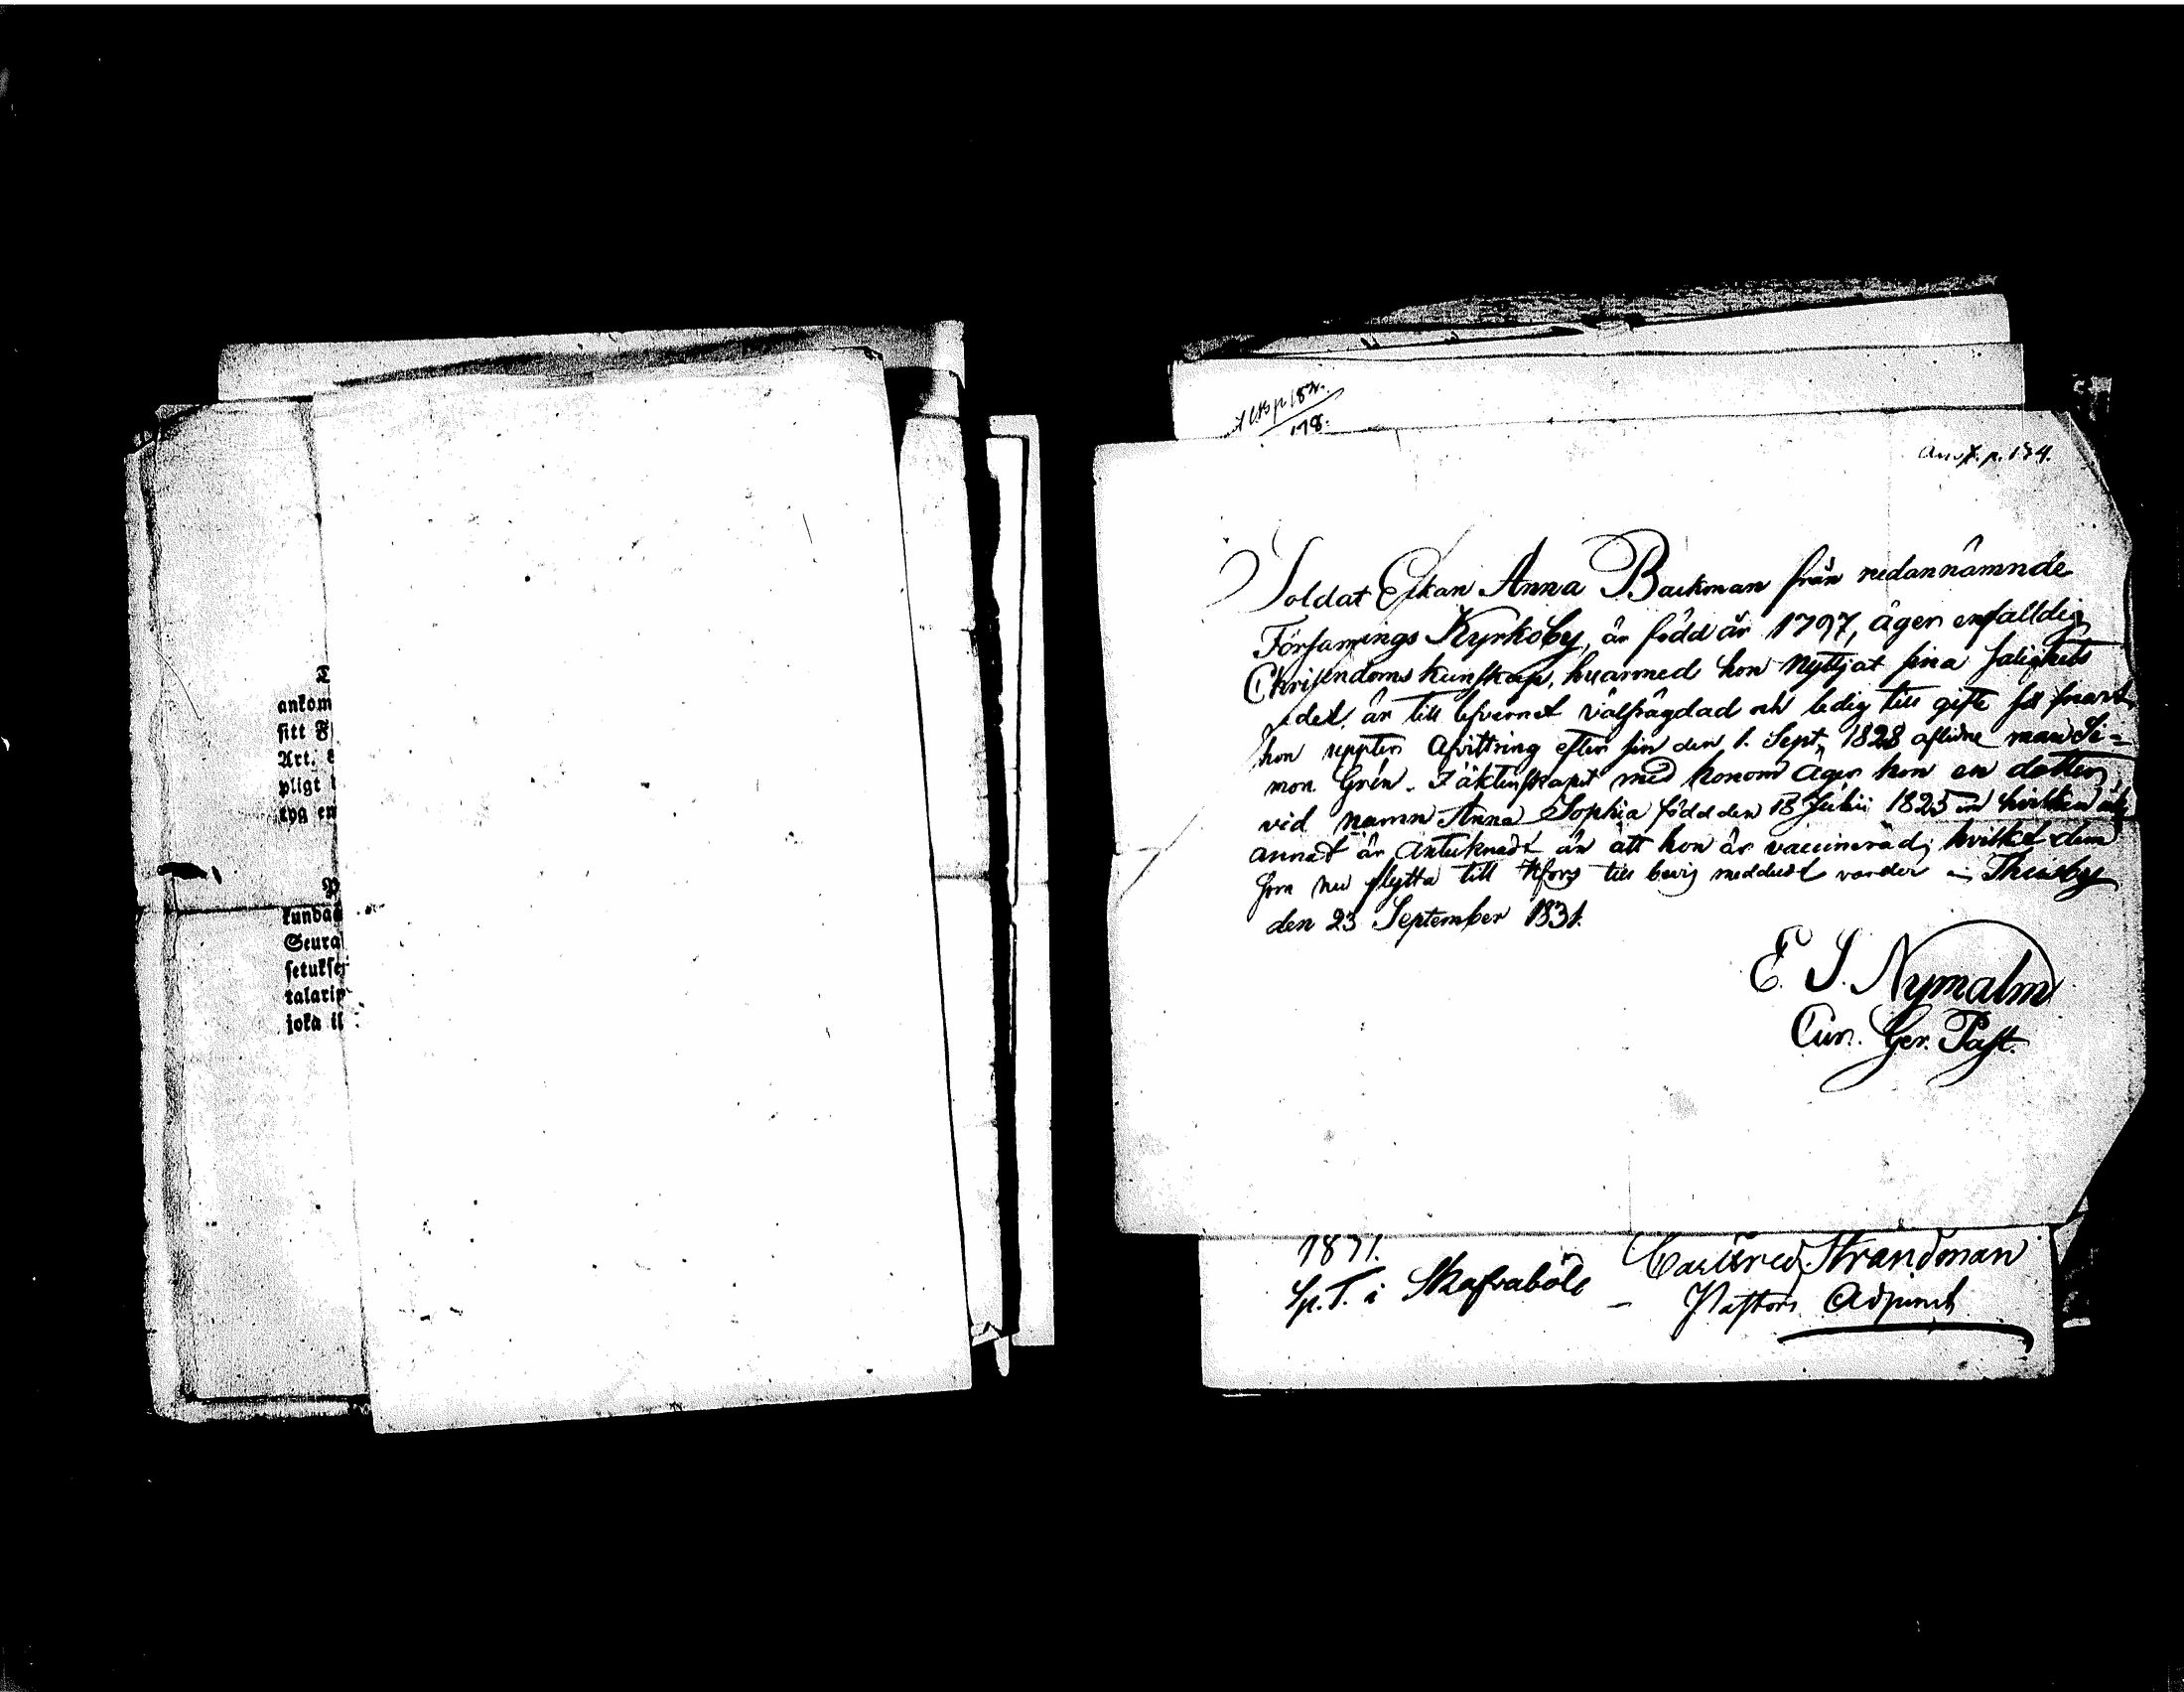 T
ankom
sitt F
Art.
pligt
tyg en
P
kundan
Seura
setukse
talarin
joka il
178.
p. 184.
Soldat Enkan Anna Backman från nedannämnde
Församlings Kyrkoby, är född år 1797, äger enfalldig
Christendoms kunskap, hvarmed hon nyttjat sina salighets
medel, är till lefvernet välfrägdad och ledig till gifte så snart
hon uppter Afvittring efter sin den 1. Sept. 1828 aflidne man Si=
mon Grén. I äktenskapet med honom äger hon en dotter,
vid namn Anna Sophia född den 18 Julii 1825 om hvilken
annat är antecknadt än att hon är vaccinerad; hvilket dem
som nu flytta till Hfors till bevis meddeladt varder – Thusby
den 23 September 1831.
E. J. Nymalm
Cur. Ger. Past.
1831.
Sp. T. i Skafraböle
Strandman
Pastors Adjunct